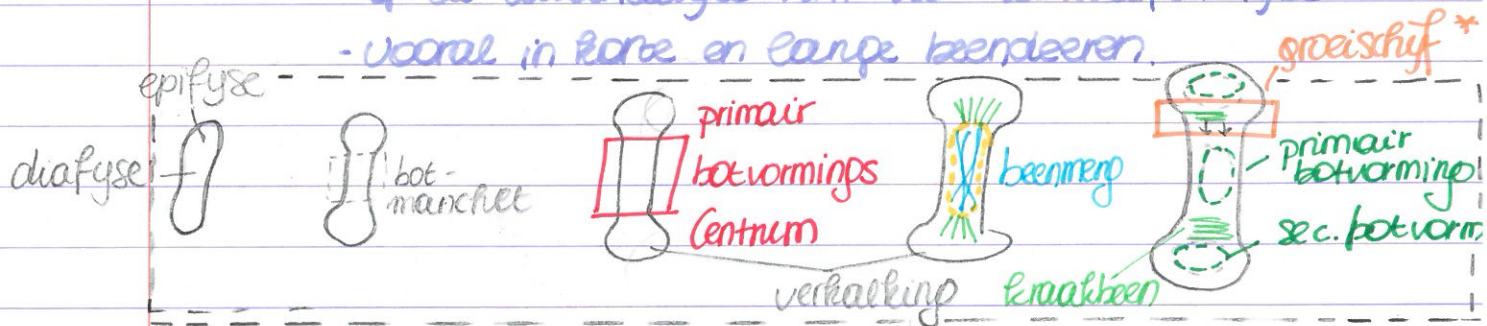 - vooral in korte en lange beenderen.
groeischijf *
epifyse
diafyse
bot-
manchet
primair
botvormings
Centrum
beenmerg
primair
botvorming
sec. botvorm
verkalking
kraakbeen